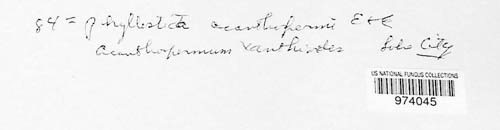 84 = Phyllosticta acanthospermi E+E
Acanthospermum xanthioides City
US NATIONAL FUNGUS COLLECTIONS
974045